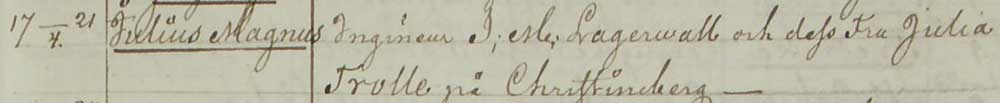 17 4. 21 Julius Magnus Ingineur J, M, Lagerwall och dess Fru Julia
Trolle på Christineberg —